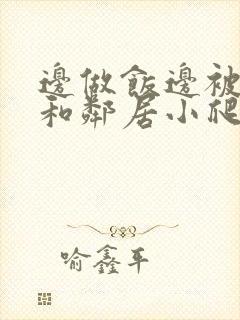 邊做飯邊被
和鄰居小爬
喻鑫平